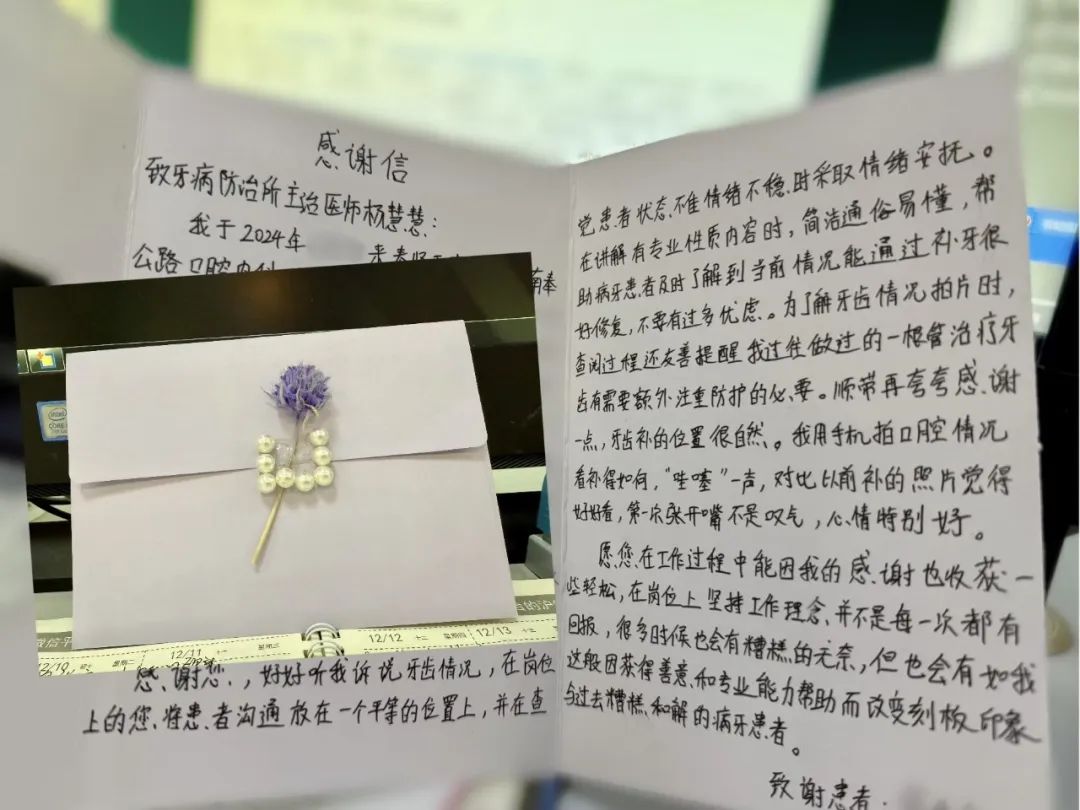 感谢信
致牙病防治所主治医师杨慧慧：
我于2024年
公路口腔内科
南奉
感谢您，好好听我诉说牙齿情况，在岗位
上的您将患者沟通放在一个平等的位置上，并在查
觉患者状态不难情绪不稳时采取情绪安抚。
在讲解有专业性质内容时，简洁通俗易懂，帮
助病牙患者及时了解到当前情况能通过补牙很
好修复，不要有过多忧虑。为了解牙齿情况拍片时，
查阅过程还友善提醒我过往做过的一根管治疗牙
齿有需要额外注重防护的必要。顺带再夸夸感谢
一点，牙齿补的位置很自然。我用手机拍口腔情况
看补得如何，“哇噻”一声，对比以前补的照片觉得
好好看，第一次张开嘴不是叹气，心情特别好。
愿您在工作过程中能因我的感谢也收获一
些轻松，在岗位上坚持工作理念并不是每一次都有
回报，很多时候也会有糟糕的无奈，但也会有如我
这般因获得善意和专业能力帮助而改变刻板印象
与过去糟糕和解的病牙患者。
致谢患者：
intel
CORE
12/11
12/12
12/13